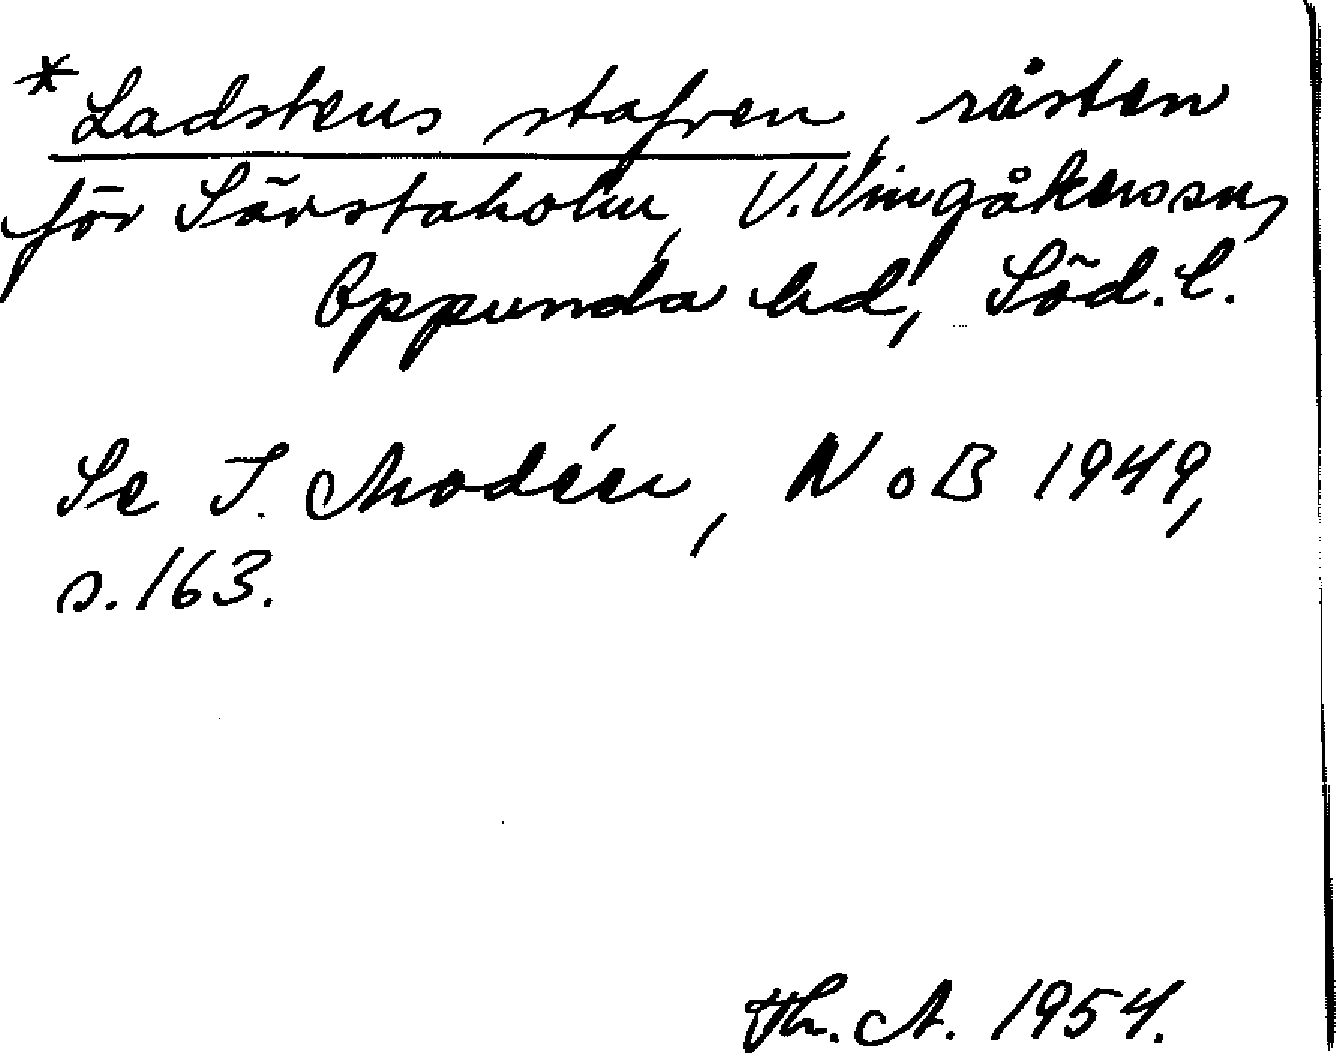 *Ladstens stafren, råsten
för Sävstaholm, V. Vingåkers sn,
Oppunda hd, Söd. l.
Se I. Modéer, NoB 1949,
s. 163.
Th. A. 1954.